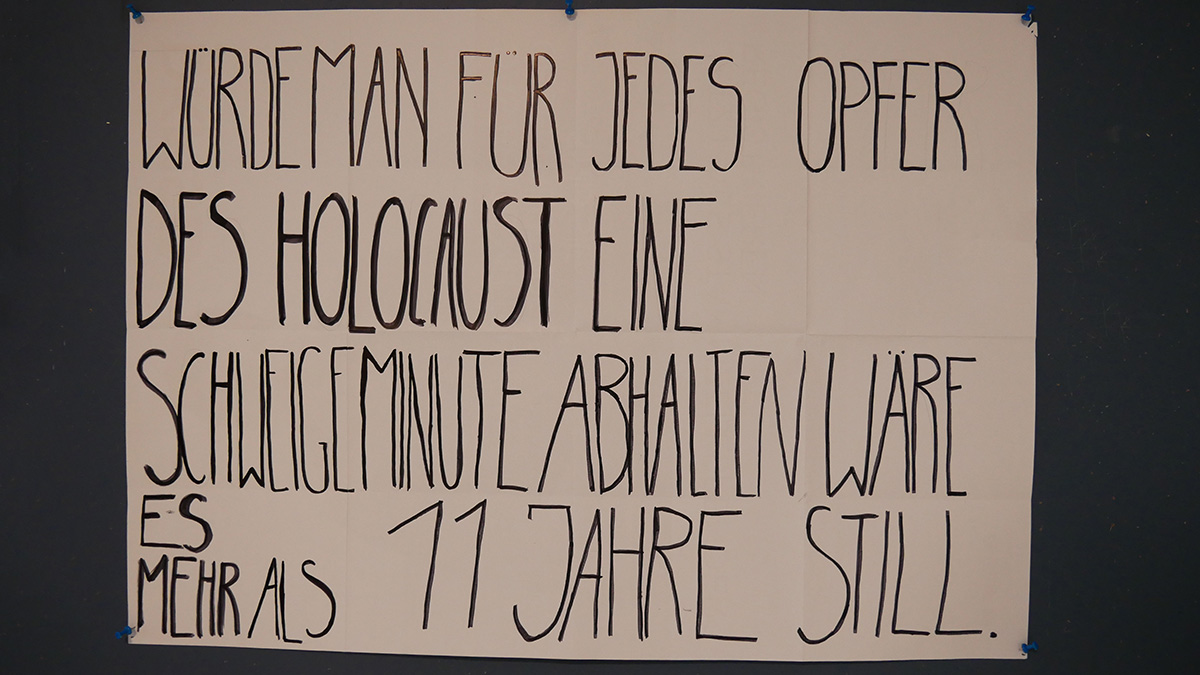 WÜRDE MAN FÜR JEDES OPFER
DES HOLOCAUST EINE
SCHWEIGEMINUTE ABHALTEN WÄRE
ES
MEHR ALS 11 JAHRE STILL.